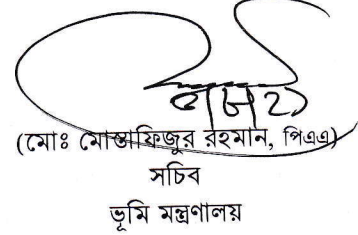 (মোঃ মোস্তাফিজুর রহমান, পিএএ)
সচিব
ভূমি মন্ত্রণালয়